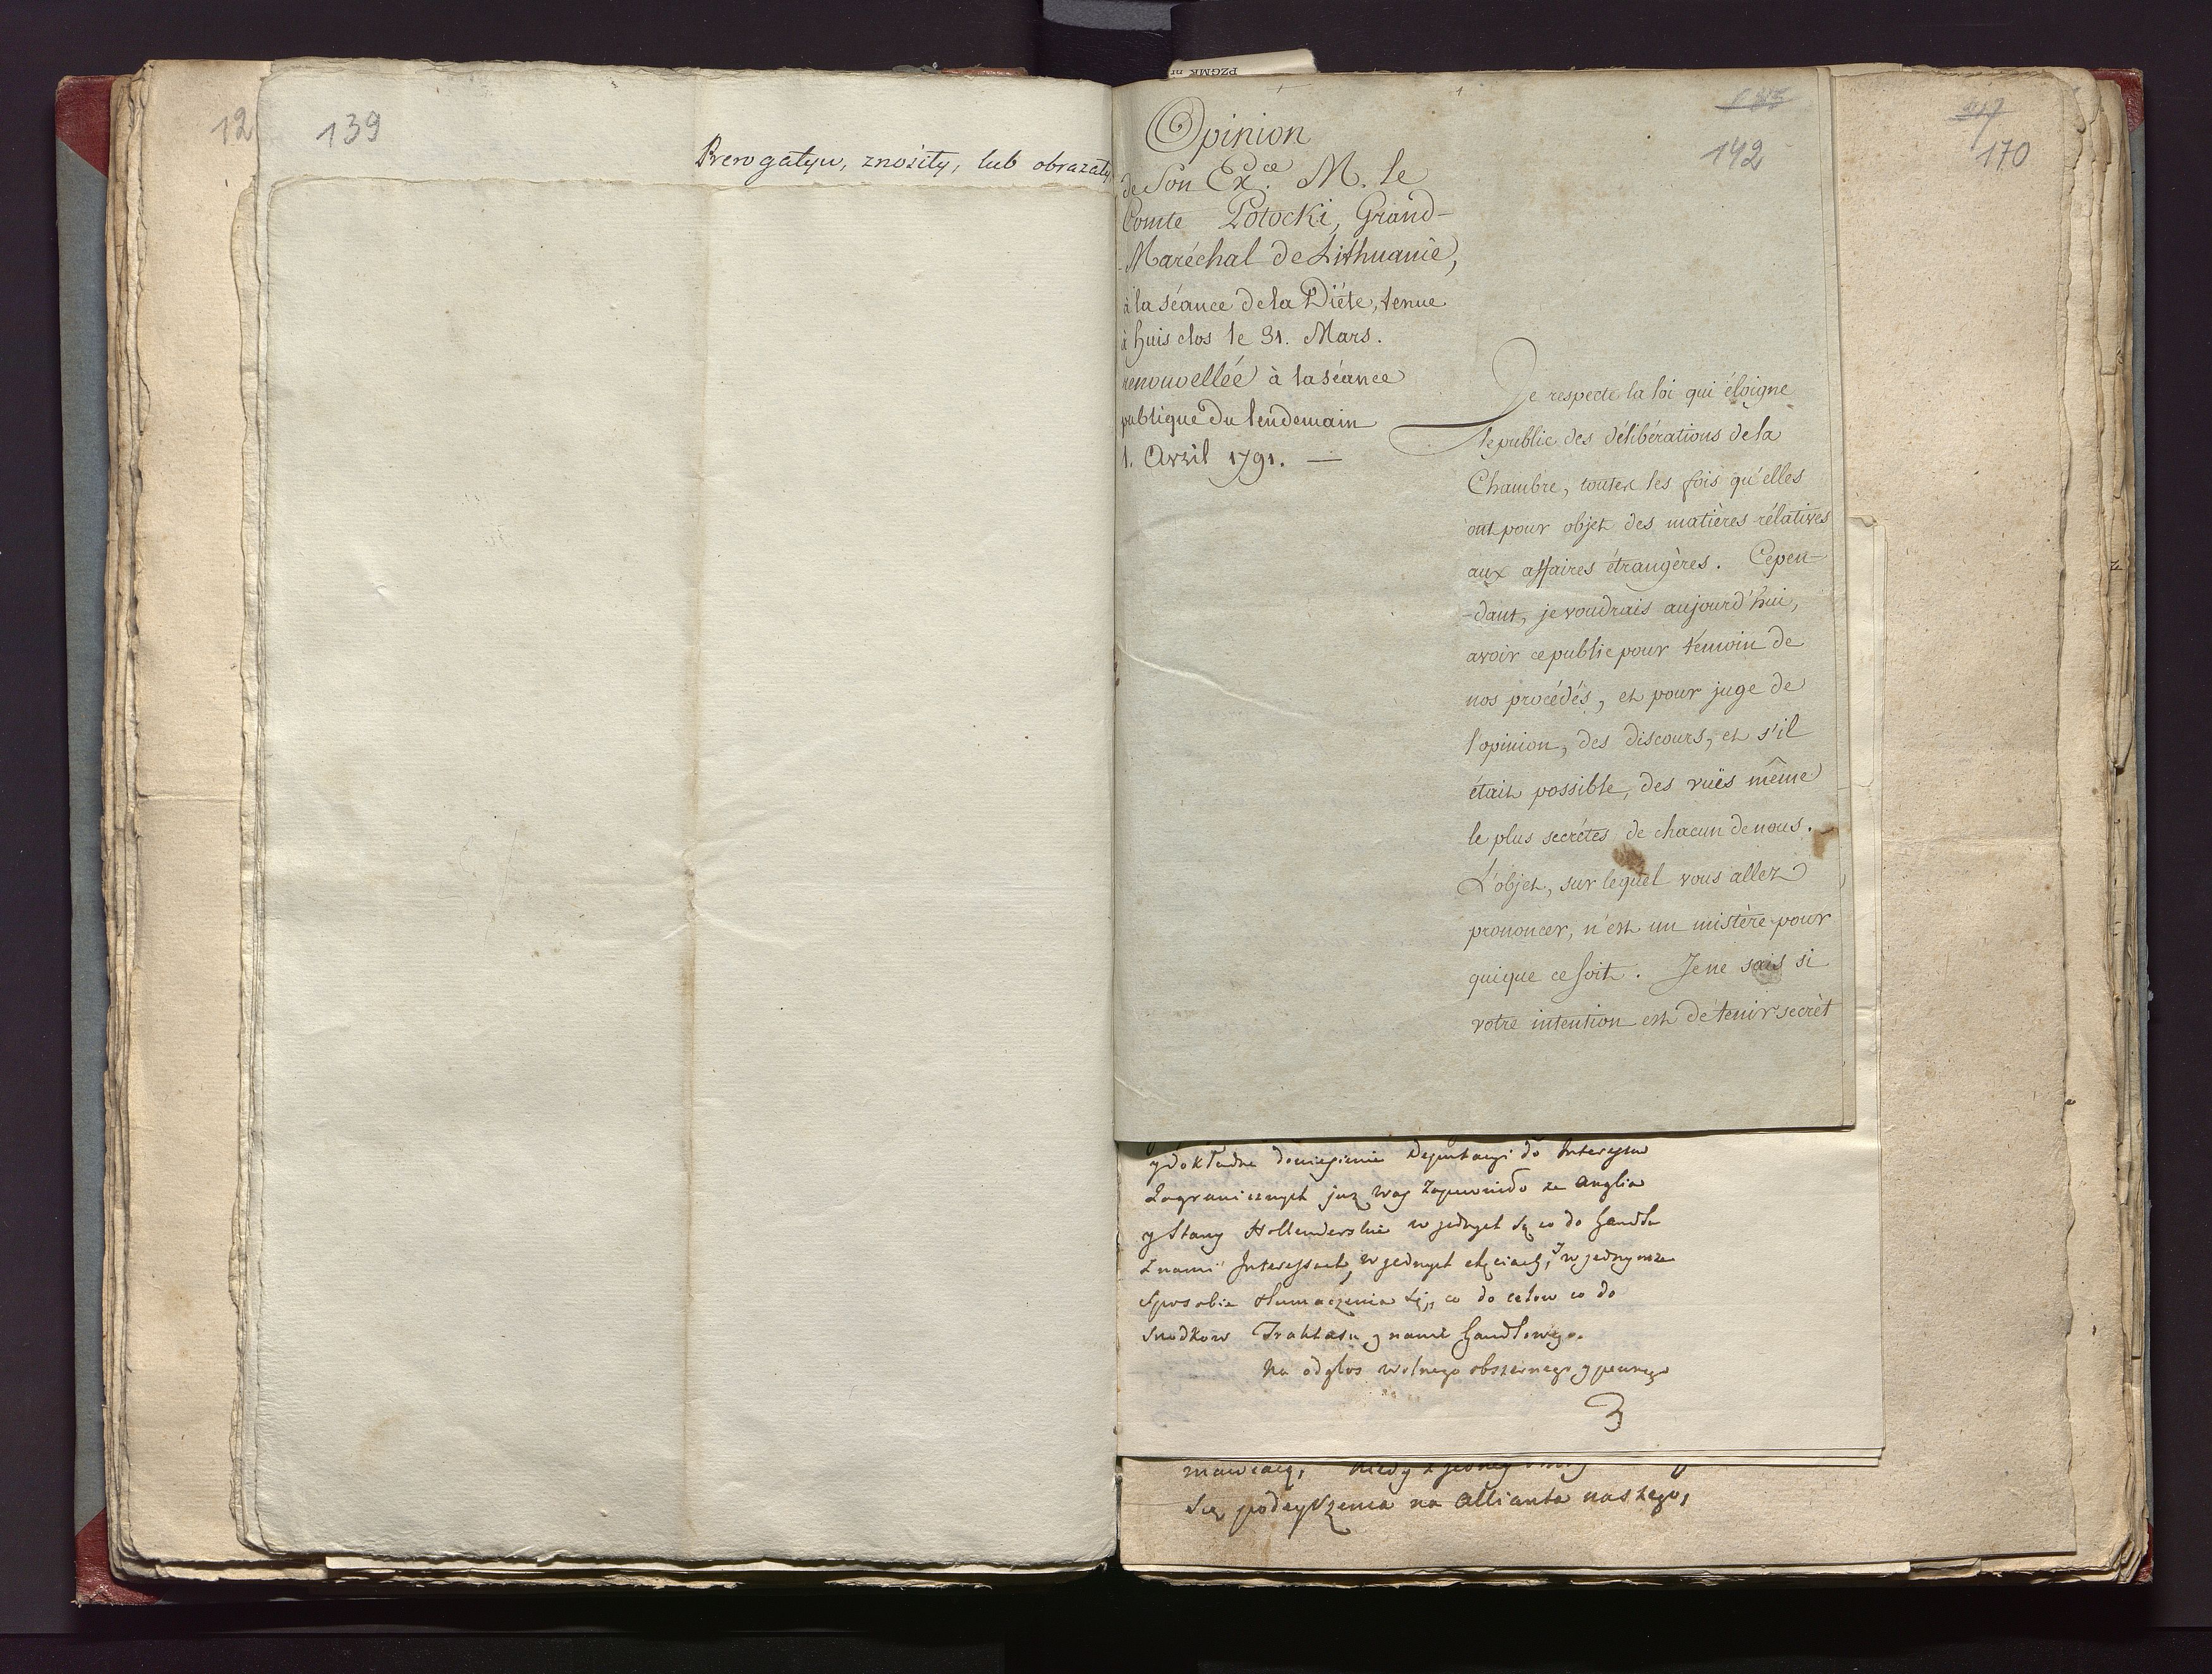 12
139
Prerogatyw, znosiły, lub obrazały
PZGMK nr
142
170
Opinion
de Son Ex.ce M. le
Comte Potocki, Grand-
-Maréchal de Lithuanie,
à la séance de la Diéte, tenue
à huis clos le 31. Mars.
renouvellée à la séance
publique du lendemain
1. Avril 1791. —
Je respecte la loi qui éloigne
le public des délibérations de la
Chambre, toutes les fois qu'elles
ont pour objet des matières rélatives
aux affaires étrangères. Cepen-
-dant, je voudrais aujourd'hui,
avoir ce public pour témoin de
nos procédés, et pour juge de
l'opinion, des discours, et s'il
était possible, des vuës même
le plus secrétes de chacun de nous.
L'objet, sur lequel vous allez
prononcer, n'est un mistère pour
quique ce soit. Je ne sais si
votre intention est de tenir secrèt
y dokładne doniesienie Deputacyi do Interessow
Zagranicznych juz was zapewniło ze Anglia
y Stany Hollenderskie w jednych są co do handlu
z nami Interessach, w jednych chęciach, y w jednymże
sposobie tłumaczenia się, co do celow co do
srodkow Traktatu z nami handlowego.
Na odgłos wolnego obszernego y pewnego
3
mawiaią,
się podeyrzenia na Allianta naszego,